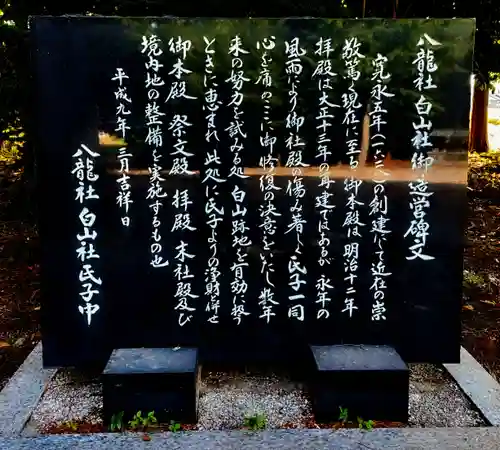 八龍社 白山社 御造営碑文
寛永五年(一六二八)の創建にして近在の崇
敬篤く現在に至る 御本殿は 明治十二年
拝殿は大正十三年の再建ではあるが 永年の
風雨により御社殿の傷み著しく 氏子一同
心を痛め ここに御修復の決意をいたし 数年
来の努力を試みる処 白山跡地を有効に扱う
ときに恵まれ 此処に氏子よりの浄財と併せ
御本殿 祭文殿 拝殿 末社殿及び
境内地の整備を実施するもの也
平成九年 三月吉祥日
八龍社 白山社氏子中